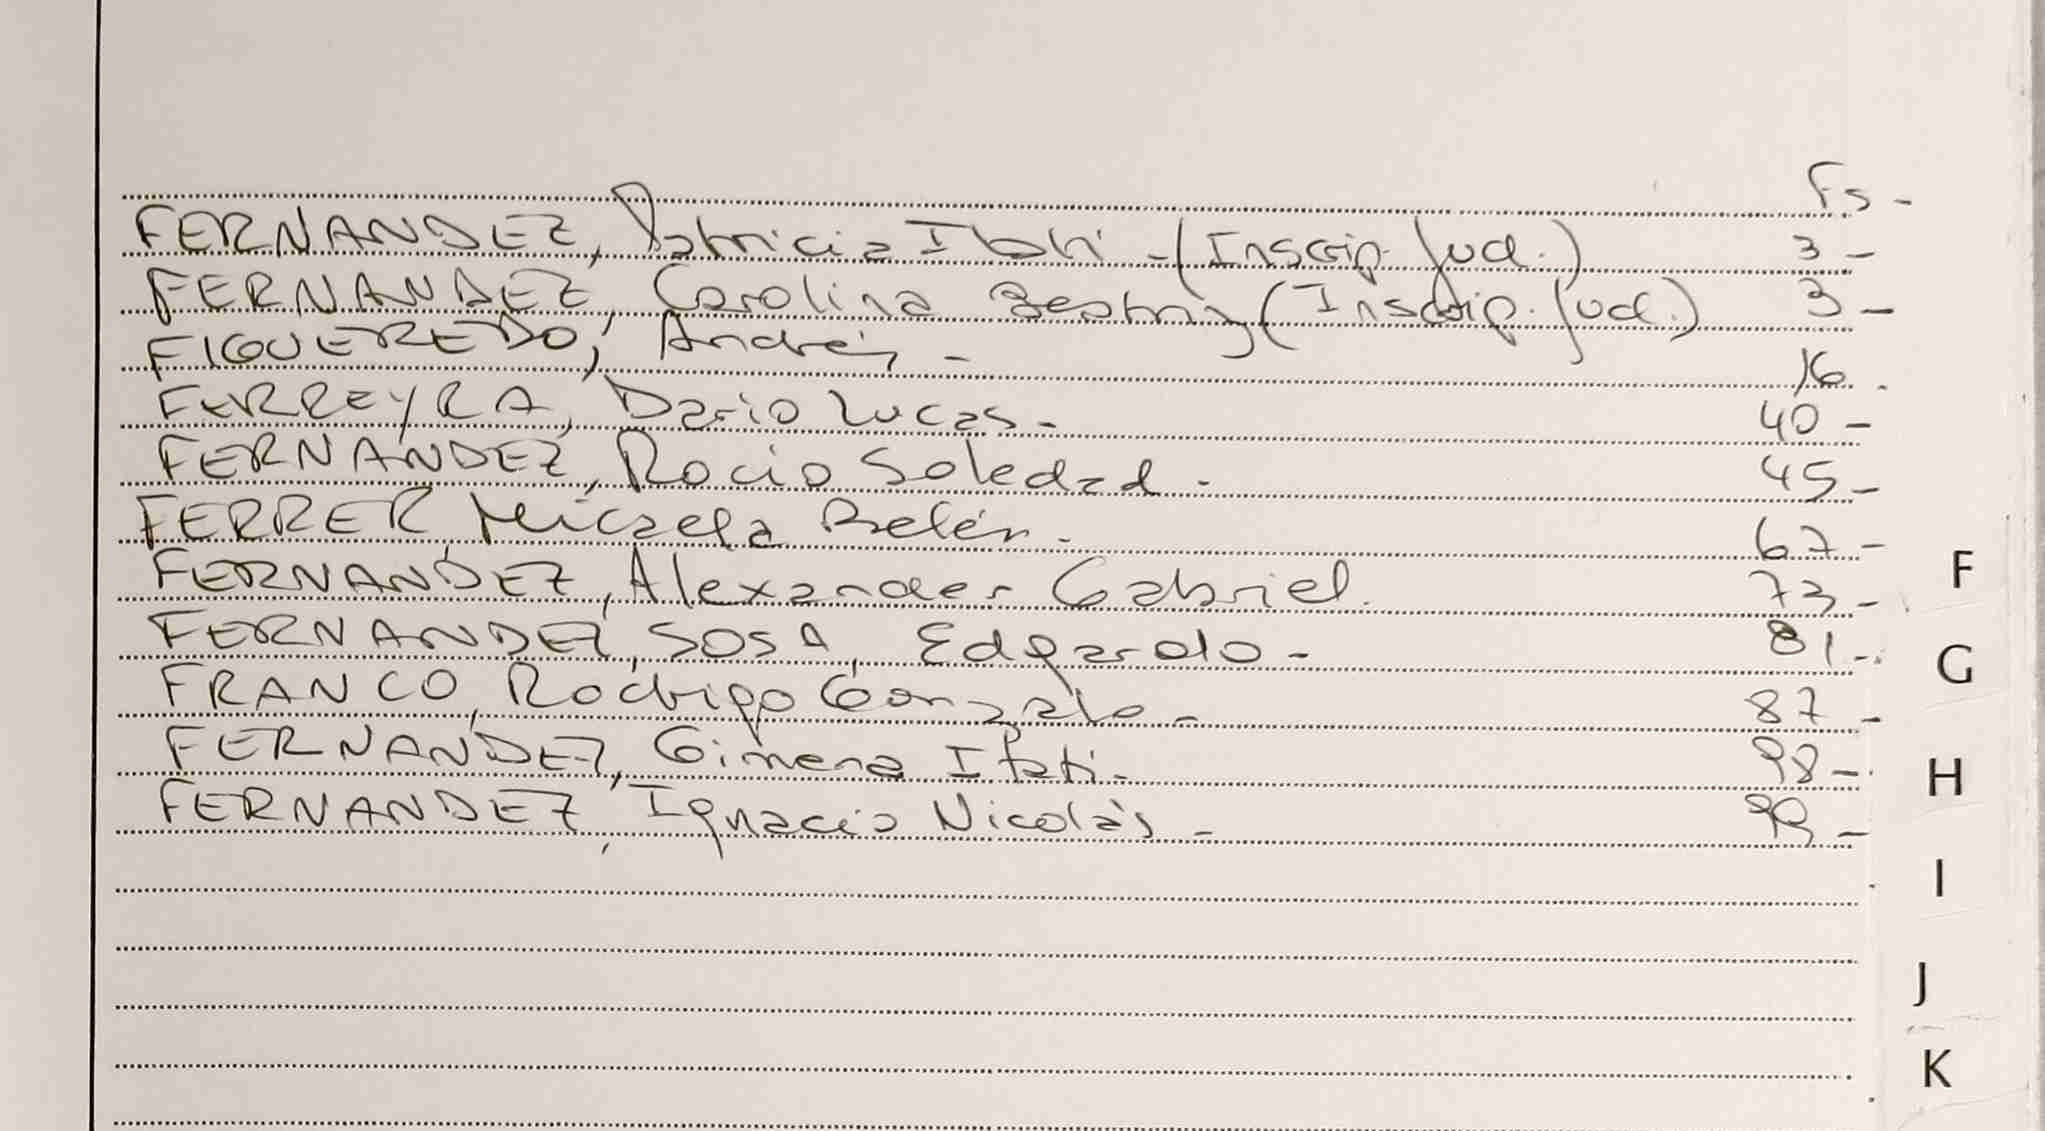 Fs -
FERNANDEZ, Patricia Itatí - (Inscrip. Jud.) 3 -
FERNANDEZ, Carolina Beatriz (Inscrip. Jud.) 3 -
FIGUEREDO, Andrés - 16.
FERREYRA, Dario Lucas - 40 -
FERNANDEZ, Rocio Soledad - 45 -
FERRER, Micaela Belén - 67 -
FERNANDEZ, Alexander Gabriel. 73 -
FERNANDEZ, SOSA, Edgardo - 81 -
FRANCO, Rodrigo Gonzalo - 87 -
FERNANDEZ, Gimena Itati - 98 -
FERNANDEZ, Ignacio Nicolás - 99 -
F
G
H
I
J
K